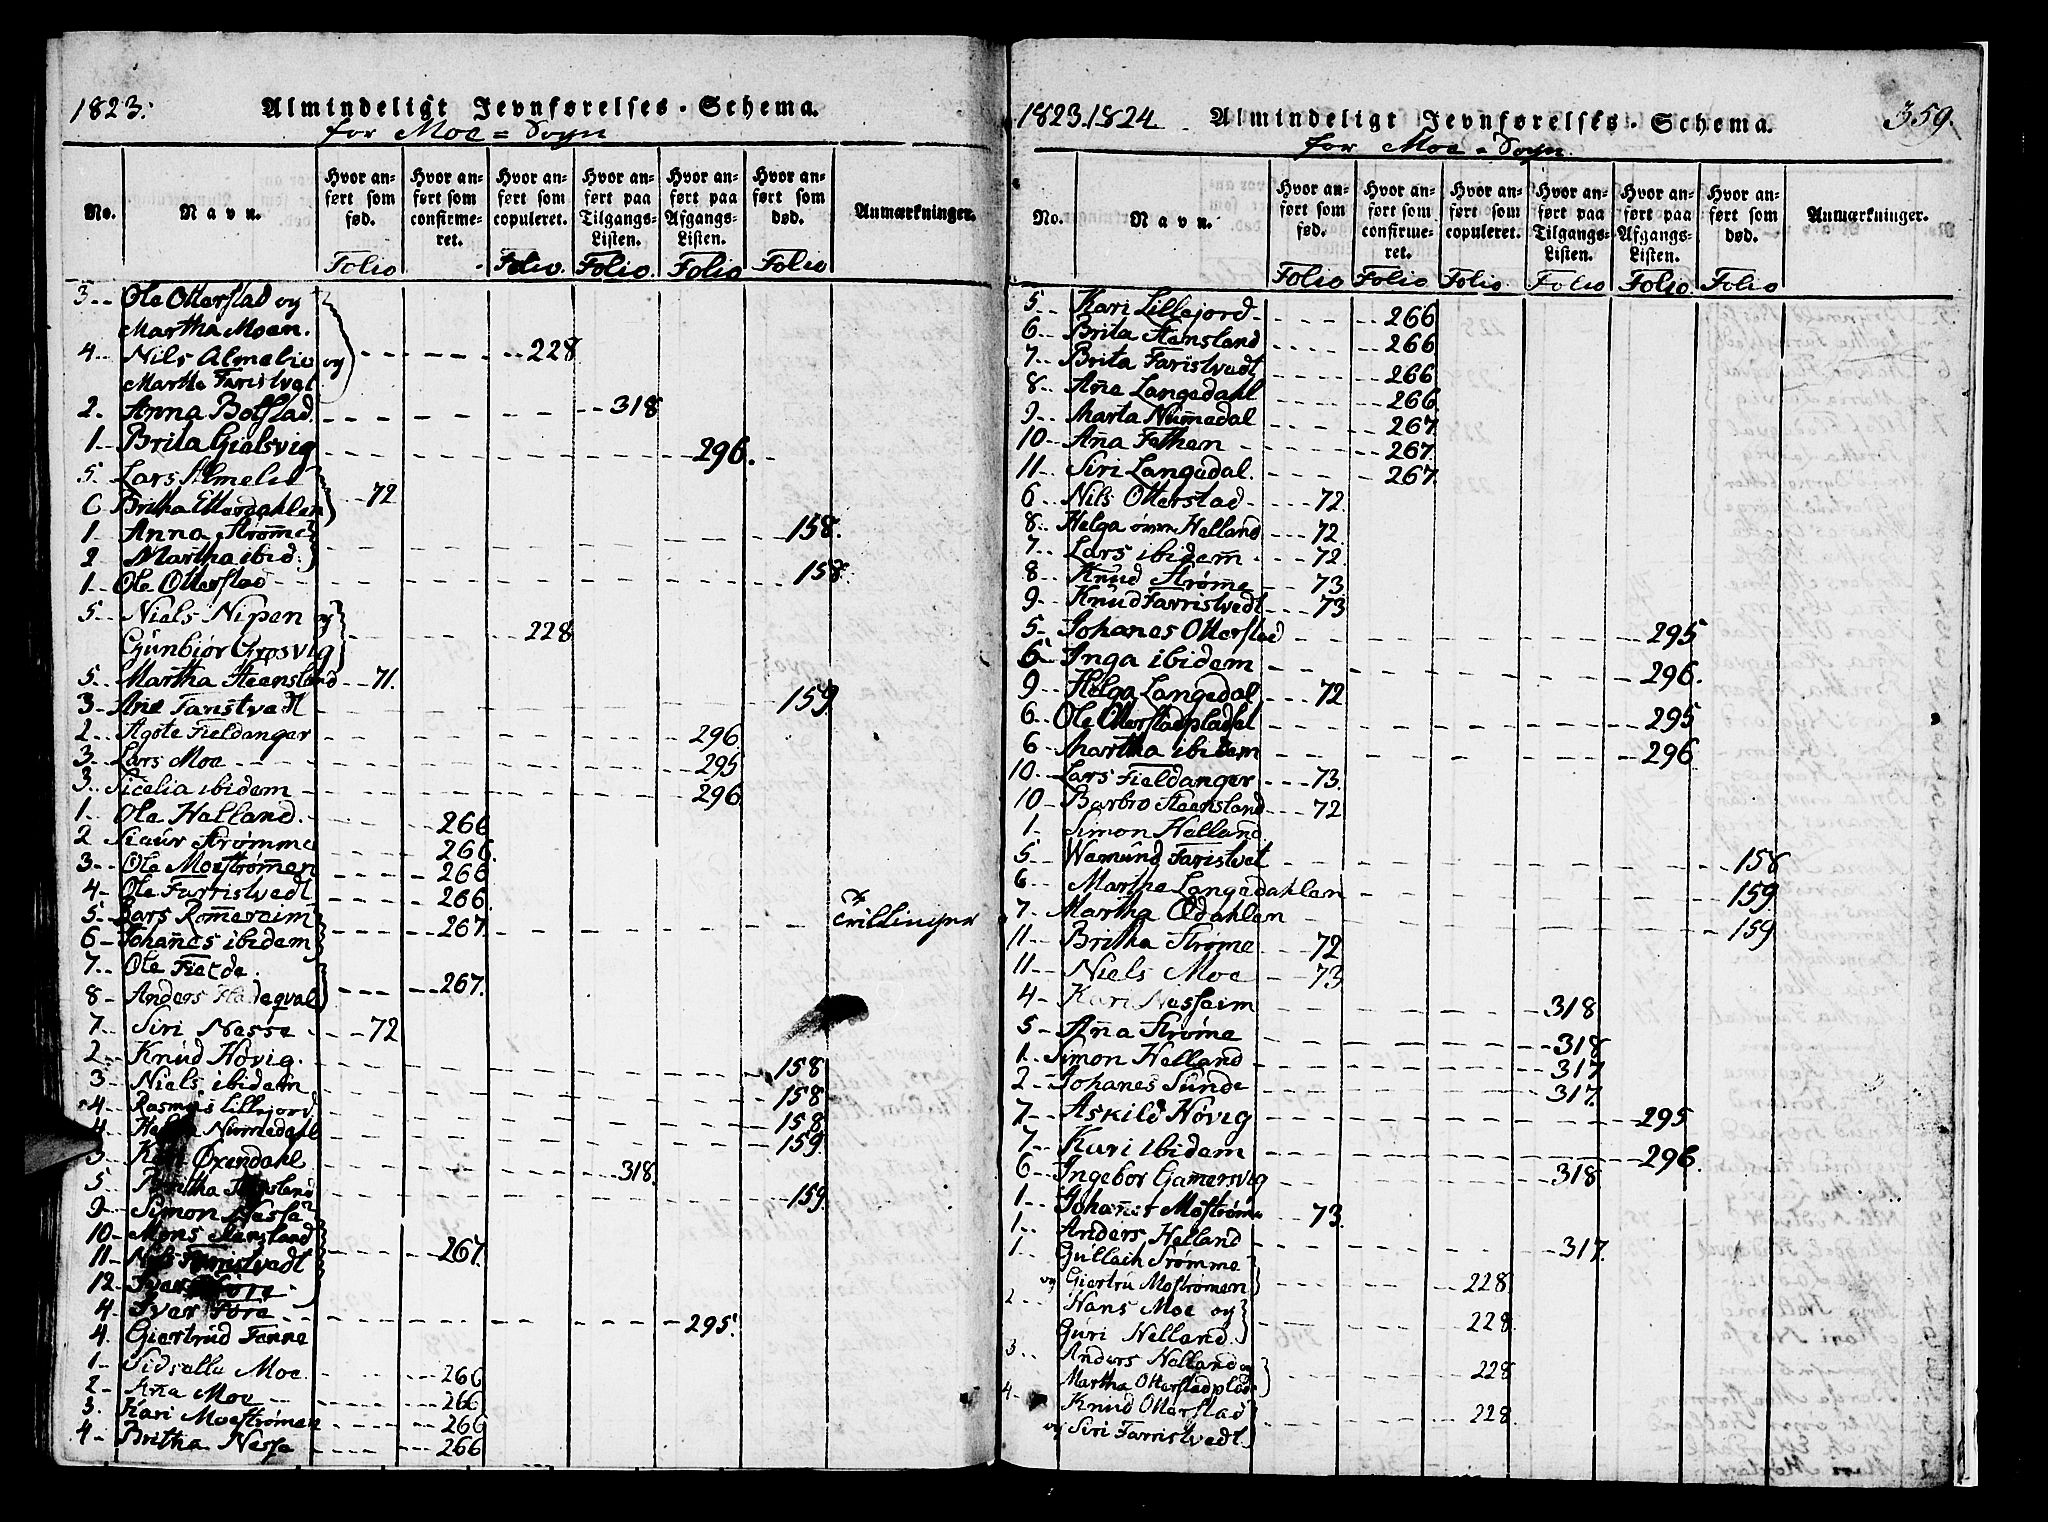 1823.
Almindeligt Jevnførelses-Schema.
for Moe = Sogn
No.
Navn.
Hvor anført som fød.
Hvor anført som confirmeret.
Hvor anført som copuleret.
Hvor anført paa Tilgangs-Listen.
Hvor anført paa Afgangs-Listen.
Hvor anført som død.
Anmærkninger.
Folio Folio. Folio. Folio Folio
3 Ole Otterstad og
Martha Moen.
4 Nils Almelie og 228
Martha Faristvet
2. Anna Bolstad. 318
1 Brita Gialsvig 296.
5 Lars Almelie
6 Britha Etterdahlen 72
1 Anna Strømme 158.
2 Martha ibid.
1 Ole Otterstad 158.
5 Niels Nipen og 228
Gunbiør Grøsvig
5. Martha Steensland 71.
3 Ane Faristvedt 159
2. Agote Fieldanger 296.
3. Lars Moe 295
3. Sicelia ibidem 296
1. Ole Helland. 266
2 Siour Strømme 266.
3 Ole Moestrømen 266
4 Ole Farristvedt 266.
5 Lars Romereim 267. Tvillinger
6 Johannes ibidem
7 Ole Fielde.
8 Anders Hadeqval 267.
7 Siri Nesse 72
2 Knud Hovig. 158
3 Niels ibidem 158
4 Rasmus Lillejord 158
4 Numedahl 159
3 Øxendahl 318.
5 Britha Stensland 159
9 Simon Nesse
10 Mons Stensland 267.
11 Nils Farristvedt
12 Iver Fore
4 Iver Fore 295.
4. Giertrud Fenne
1 Sidselle Moe 266
2 Ana Moe 266
3. Kari Moestrømen 266
4 Britha Nesse 266
1823.1824.
Almindeligt Jevnførelses-Schema.
359.
for Moe = Sogn.
No.
Navn.
Hvor anført som fød.
Hvor anført som confirmeret.
Hvor anført som copuleret.
Hvor anført paa Tilgangs-Listen.
Hvor anført paa Afgangs-Listen.
Hvor anført som død.
Anmærkninger.
Folio Folio Folio Folio Folio. Folio
5 Kari Lillejord 266
6 Brita Stensland 266
7 Brita Faristvedt 266
8 Ane Langedahl 266
9 Marta Numedal 267
10 Ana Fethen 267.
11 Siri Langedal. 267
6 Nils Otterstad 72.
8 Helga Helland 72.
7 Lars ibidem 72
8 Knud Strøme 73
9 Knud Farristvedt 73
5 Johanes Otterstad 295
6 Inga ibidem 296.
9 Helga Langedal 72
6 Ole Otterstadpladset 295
6 Martha ibidem 296
10 Lars Fieldanger 73.
10 Barbro Steensland 72
1 Simon Helland
5 Wemund Faristvet 158
6 Martha Langedahlen 159
7 Martha Ødahlen 159
11 Britha Strøme 72
11 Niels Moe 73
4 Kari Nesseim 318
5 Ana Strøme 318
1. Simon Helland 317
2 Johanes Sunde 317.
7 Askild Hovig 295
7 Kari ibidem 296.
6 Ingebor Gamersvig 318
1 Johannes Mostrøme 73.
1 Anders Helland 317.
1 Gullach Strømme
og Giertru Mostrømen 228
2 Hans Moe og
Guri Nelland. 228
3 Anders Nelland og
Martha Otterstadplads 228
4 Knud Otterstad 228
og Siri Farristvedt